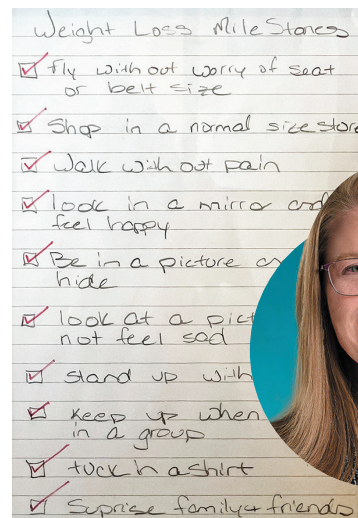 Weight Loss Mile Stones
Fly without worry of seat
or belt size
Shop in a normal size store
Walk without pain
look in a mirror and
feel happy
Be in a picture
hide
look at a
not feel sad
stand up with
Keep up when
in a group
tuck in a shirt
Suprise family + friends